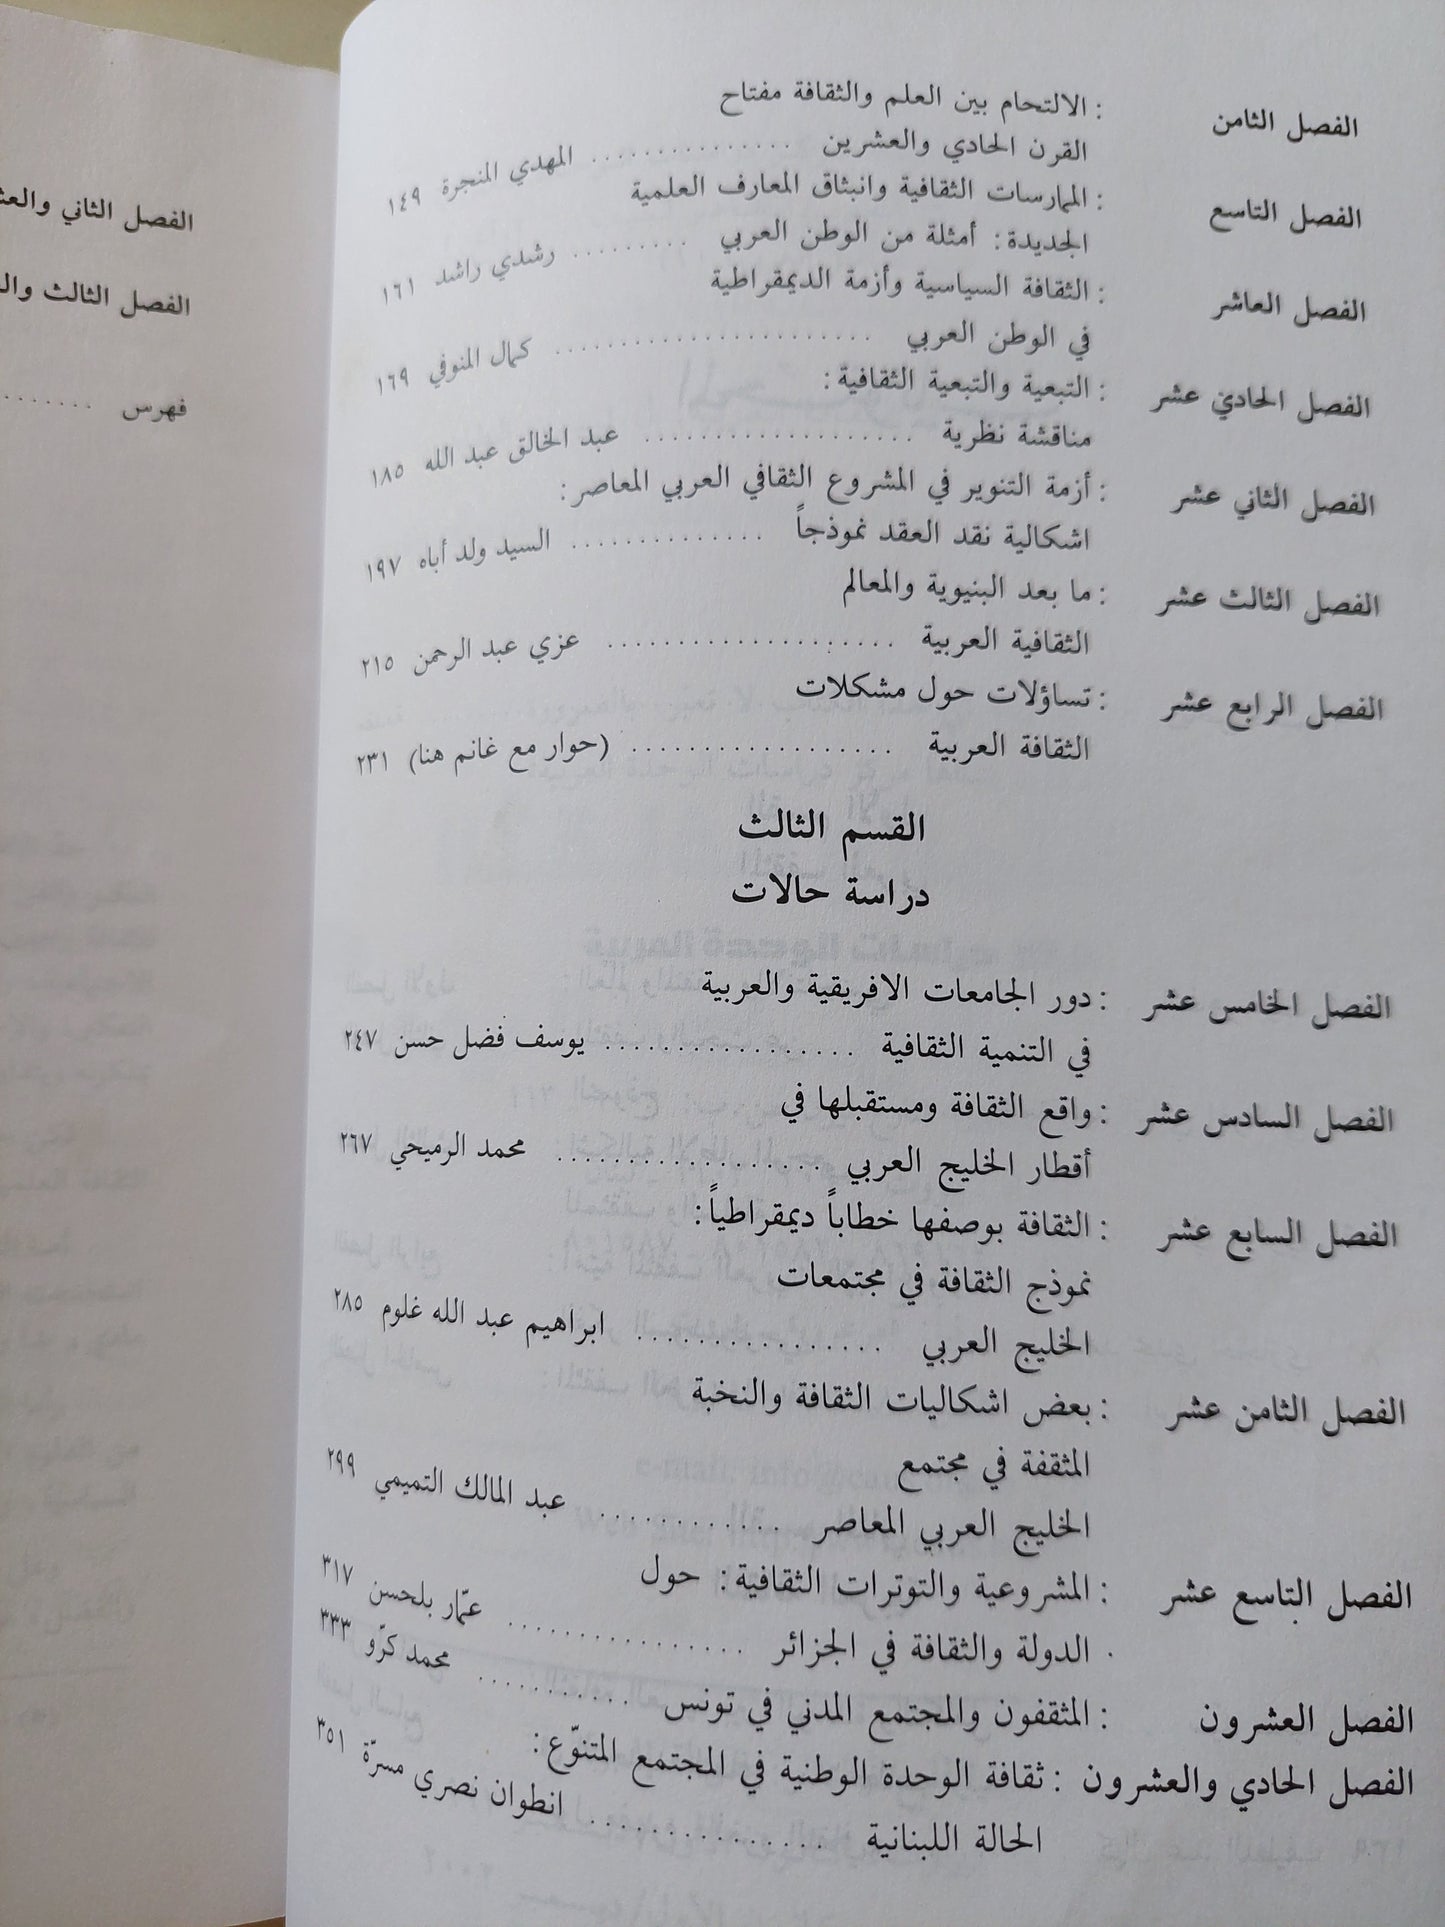 الفصل الثامن : الالتحام بين العلم والثقافة مفتاح
القرن الحادي والعشرين ............... المهدي المنجرة ١٤٩
الفصل التاسع : الممارسات الثقافية وانبثاق المعارف العلمية
الجديدة: أمثلة من الوطن العربي ......... رشدي راشد ١٦١
الفصل العاشر : الثقافة السياسية وأزمة الديمقراطية
في الوطن العربي ....................... كمال المنوفي ١٦٩
الفصل الحادي عشر : التبعية والتبعية الثقافية:
مناقشة نظرية .................... عبد الخالق عبد الله ١٨٥
الفصل الثاني عشر : أزمة التنوير في المشروع الثقافي العربي المعاصر:
اشكالية نقد العقد نموذجاً .............. السيد ولد أباه ١٩٧
الفصل الثالث عشر : ما بعد البنيوية والمعالم
الثقافية العربية ..................... عزي عبد الرحمن ٢١٥
الفصل الرابع عشر : تساؤلات حول مشكلات
الثقافة العربية ................... (حوار مع غانم هنا) ٢٣١
القسم الثالث
دراسة حالات
الفصل الخامس عشر : دور الجامعات الافريقية والعربية
في التنمية الثقافية .................. يوسف فضل حسن ٢٤٧
الفصل السادس عشر : واقع الثقافة ومستقبلها في
أقطار الخليج العربي ................... محمد الرميحي ٢٦٧
الفصل السابع عشر : الثقافة بوصفها خطاباً ديمقراطياً:
نموذج الثقافة في مجتمعات
الخليج العربي .................. ابراهيم عبد الله غلوم ٢٨٥
الفصل الثامن عشر : بعض اشكاليات الثقافة والنخبة
المثقفة في مجتمع
الخليج العربي المعاصر ............. عبد المالك التميمي ٢٩٩
الفصل التاسع عشر : المشروعية والتوترات الثقافية: حول
الدولة والثقافة في الجزائر ................. عمّار بلحسن ٣١٧
الفصل العشرون : المثقفون والمجتمع المدني في تونس ........... محمد كرّو ٣٣٣
الفصل الحادي والعشرون : ثقافة الوحدة الوطنية في المجتمع المتنوّع:
الحالة اللبنانية ................. انطوان نصري مسرّة ٣٥١
الفصل الثاني
الفصل الثالث
فهرس .......